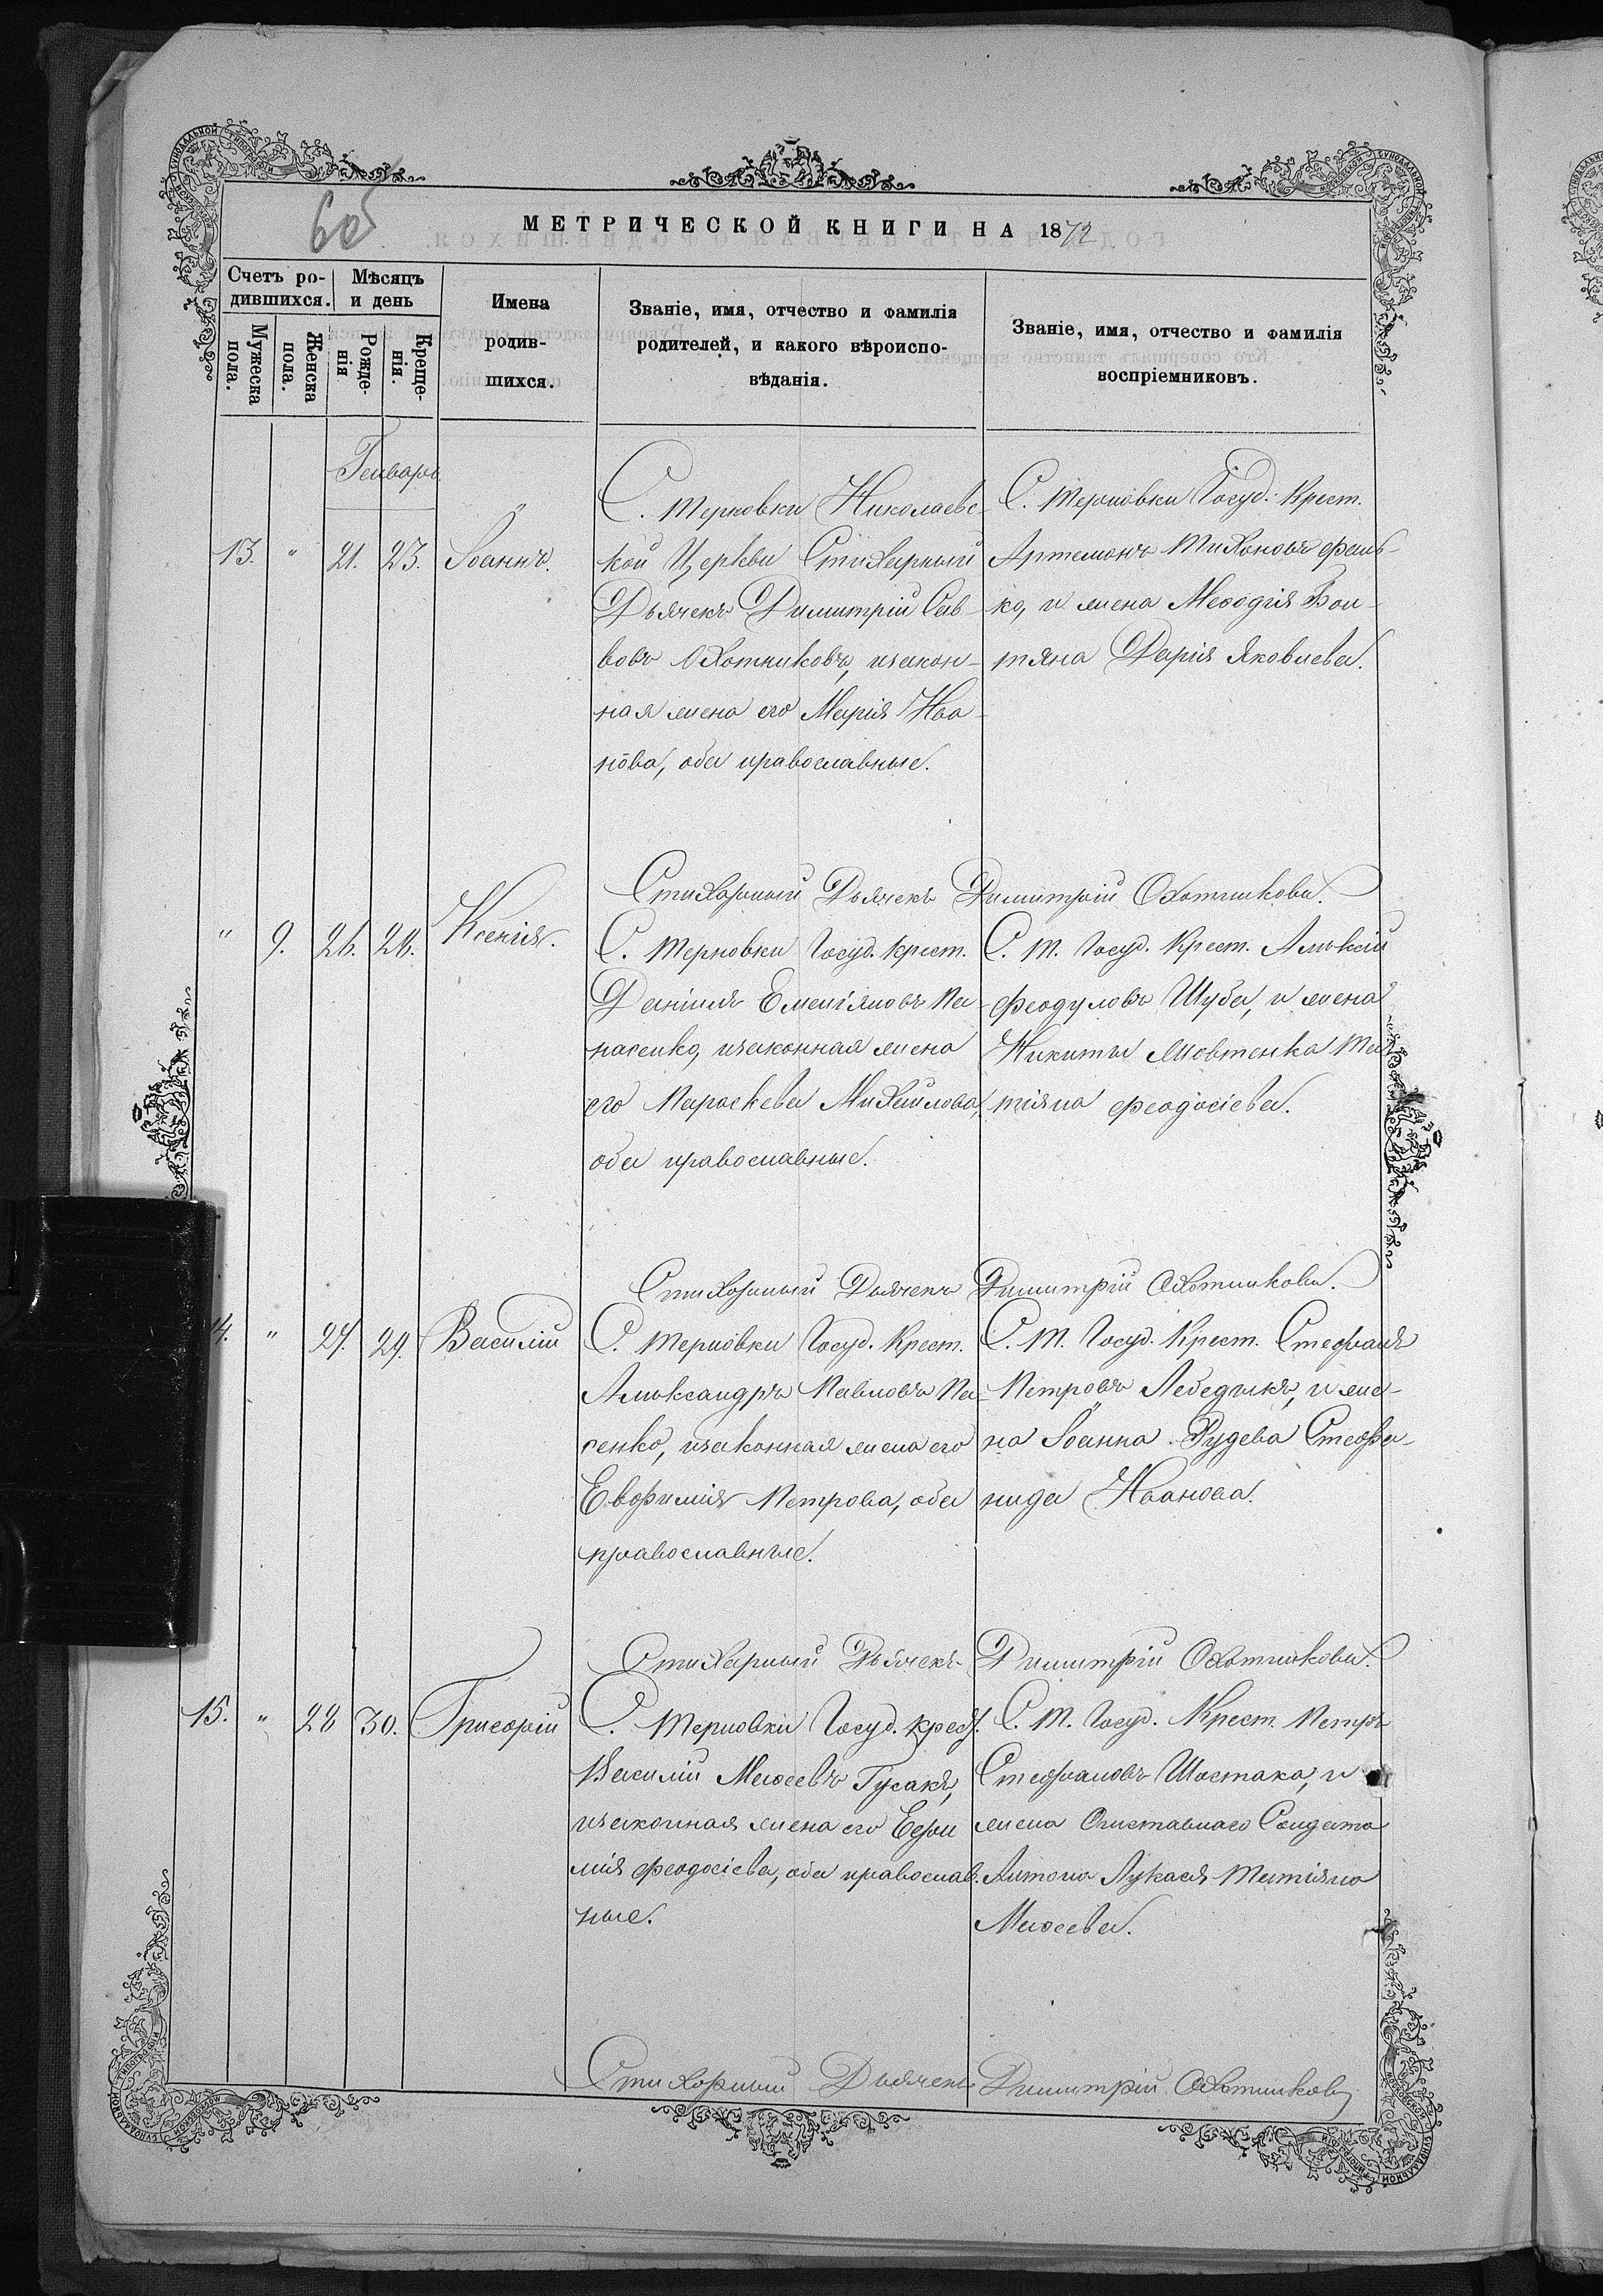 6об
МЕТРИЧЕСКОЙ КНИГИ НА 1872
Счетъ ро-
дившихся.
Мѣсяцъ
и день
Мужеска
пола.
Женска
пола.
Рожде-
нія
Креще-
нія.
Имена
родив-
шихся.
Званіе, имя, отчество и фамилія
родителей, и какого вѣроиспо-
вѣданія.
Званіе, имя, отчество и фамилія
воспріемниковъ.
Генварь
13. " 21. 23. Іоаннъ.
С. Терновки Николаевс-
кой Церкви Стихарный
Дьячекъ Димитрій Сав-
вовъ Охотниковъ, изакон-
ная жена его Марія Ива-
нова, оба православные.
С. Терновки Госуд. Крест.
Артемонъ Тихоновъ
ко, и жена Меѳодія
Дарія Яковлева.
Стихарный Дьячекъ Димитрій Охотниковъ.
" 9. 26. 28. Ксенія.
С. Терновки Госуд. Крест.
Даніилъ Емеліяновъ Па-
насенко, изаконная жена
его Параскева Михайлова,
оба православные.
С. Т. Госуд. Крест. Алексій
Феодуловъ Шуба, и жена
Никиты Мовтенка Та-
тіяна Феодосіева.
Стихарный Дьячекъ Димитрій Охотниковъ.
14. " 27. 29. Василій
С. Терновки Госуд. Крест.
Александръ Павловъ Па-
сенко, изаконная жена его
Евфимія Петрова, оба
православные.
С. Т. Госуд. Крест. Стефанъ
Петровъ Лебедикъ, и же-
на Іоанна Рудева Стефа-
нида Иванова.
Стихарный Дьячекъ Димитрій Охотниковъ.
15. " 28 30. Григорій
С. Терновки Госуд. Крест.
Василій Моисеевъ Гусакъ,
изаконная жена его Ефи
мія Феодосіева, оба православ-
ные.
С. Т. Госуд. Крест. Петръ
Стефановъ Шостака, и
жена Отставнаго Солдата
Антона Лукася Татіяна
Моисеева.
Стихарный Дьячекъ Димитрій Охотниковъ